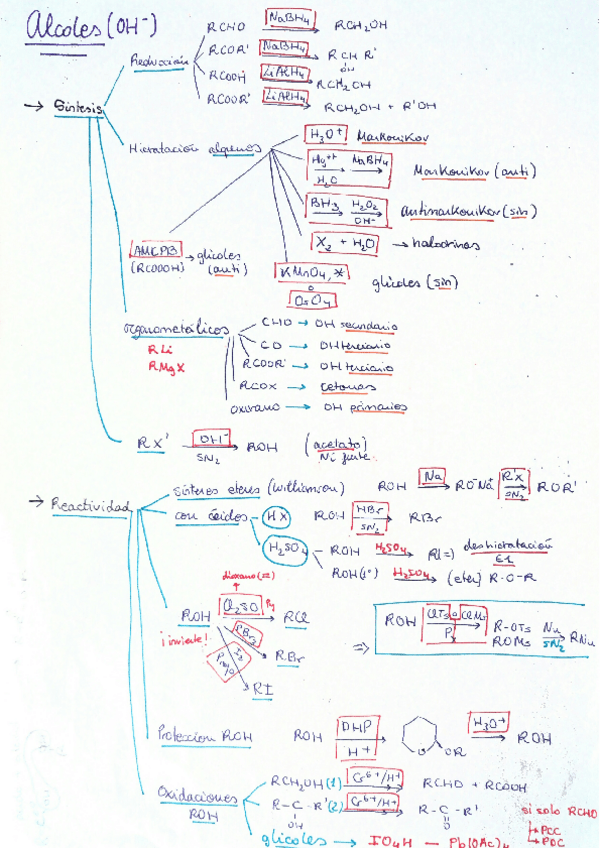 Alcoles (OH⁻)
→ Síntesis
Reducción
RCHO NaBH4 → RCH2OH
RCOR' NaBH4 → RCH R'
OH
RCOOH LiAlH4 → RCH2OH
RCOOR' LiAlH4 → RCH2OH + R'OH
Hidratación alquenos
H3O+ Markonikov
Hg++ NaBH4
H2O
Markonikov (anti)
BH3 H2O2
OH-
antimarkonikov (sin)
X2 + H2O → haloorinas
AMCPB → glicoles
(RCOOOH) (anti)
KMnO4, *
o
OsO4
glicoles (sin)
organometálicos
RLi
RMgX
CHO → OH secundario
CO → OH terciario
RCOOR' → OH terciario
RCOX → cetonas
oxirano → OH primarios
RX' OH⁻ → ROH (acelato)
SN2 Ni fuste
→ Reactividad
síntesis eteres (williamson) ROH Na → RO⁻Na⁺ R'X → ROR'
SN2
con ácidos HX ROH HBr → RBr
SN2
H2SO4 ROH H2SO4 → R(=) deshidratación
E1
ROH(1º) H2SO4 → (eter) R-O-R
dioxano (=)
ROH Cl2SO Py → RCl
¡invierte!
PBr3 → RBr
P rojo I2 → RI
⇒ ROH ClTs o ClMs → R-OTs Nu → RNu
Py ROMs SN2
Proteccion ROH ROH DHP → O OR H3O+ → ROH
H+
Oxidaciones
ROH
RCH2OH (1) Cr6+/H+ → RCHO + RCOOH
R-C-R' (2) Cr6+/H+ → R-C-R'
OH O
si solo RCHO
↳ PCC
↳ PDC
glicoles → IO4H — Pb(OAc)4